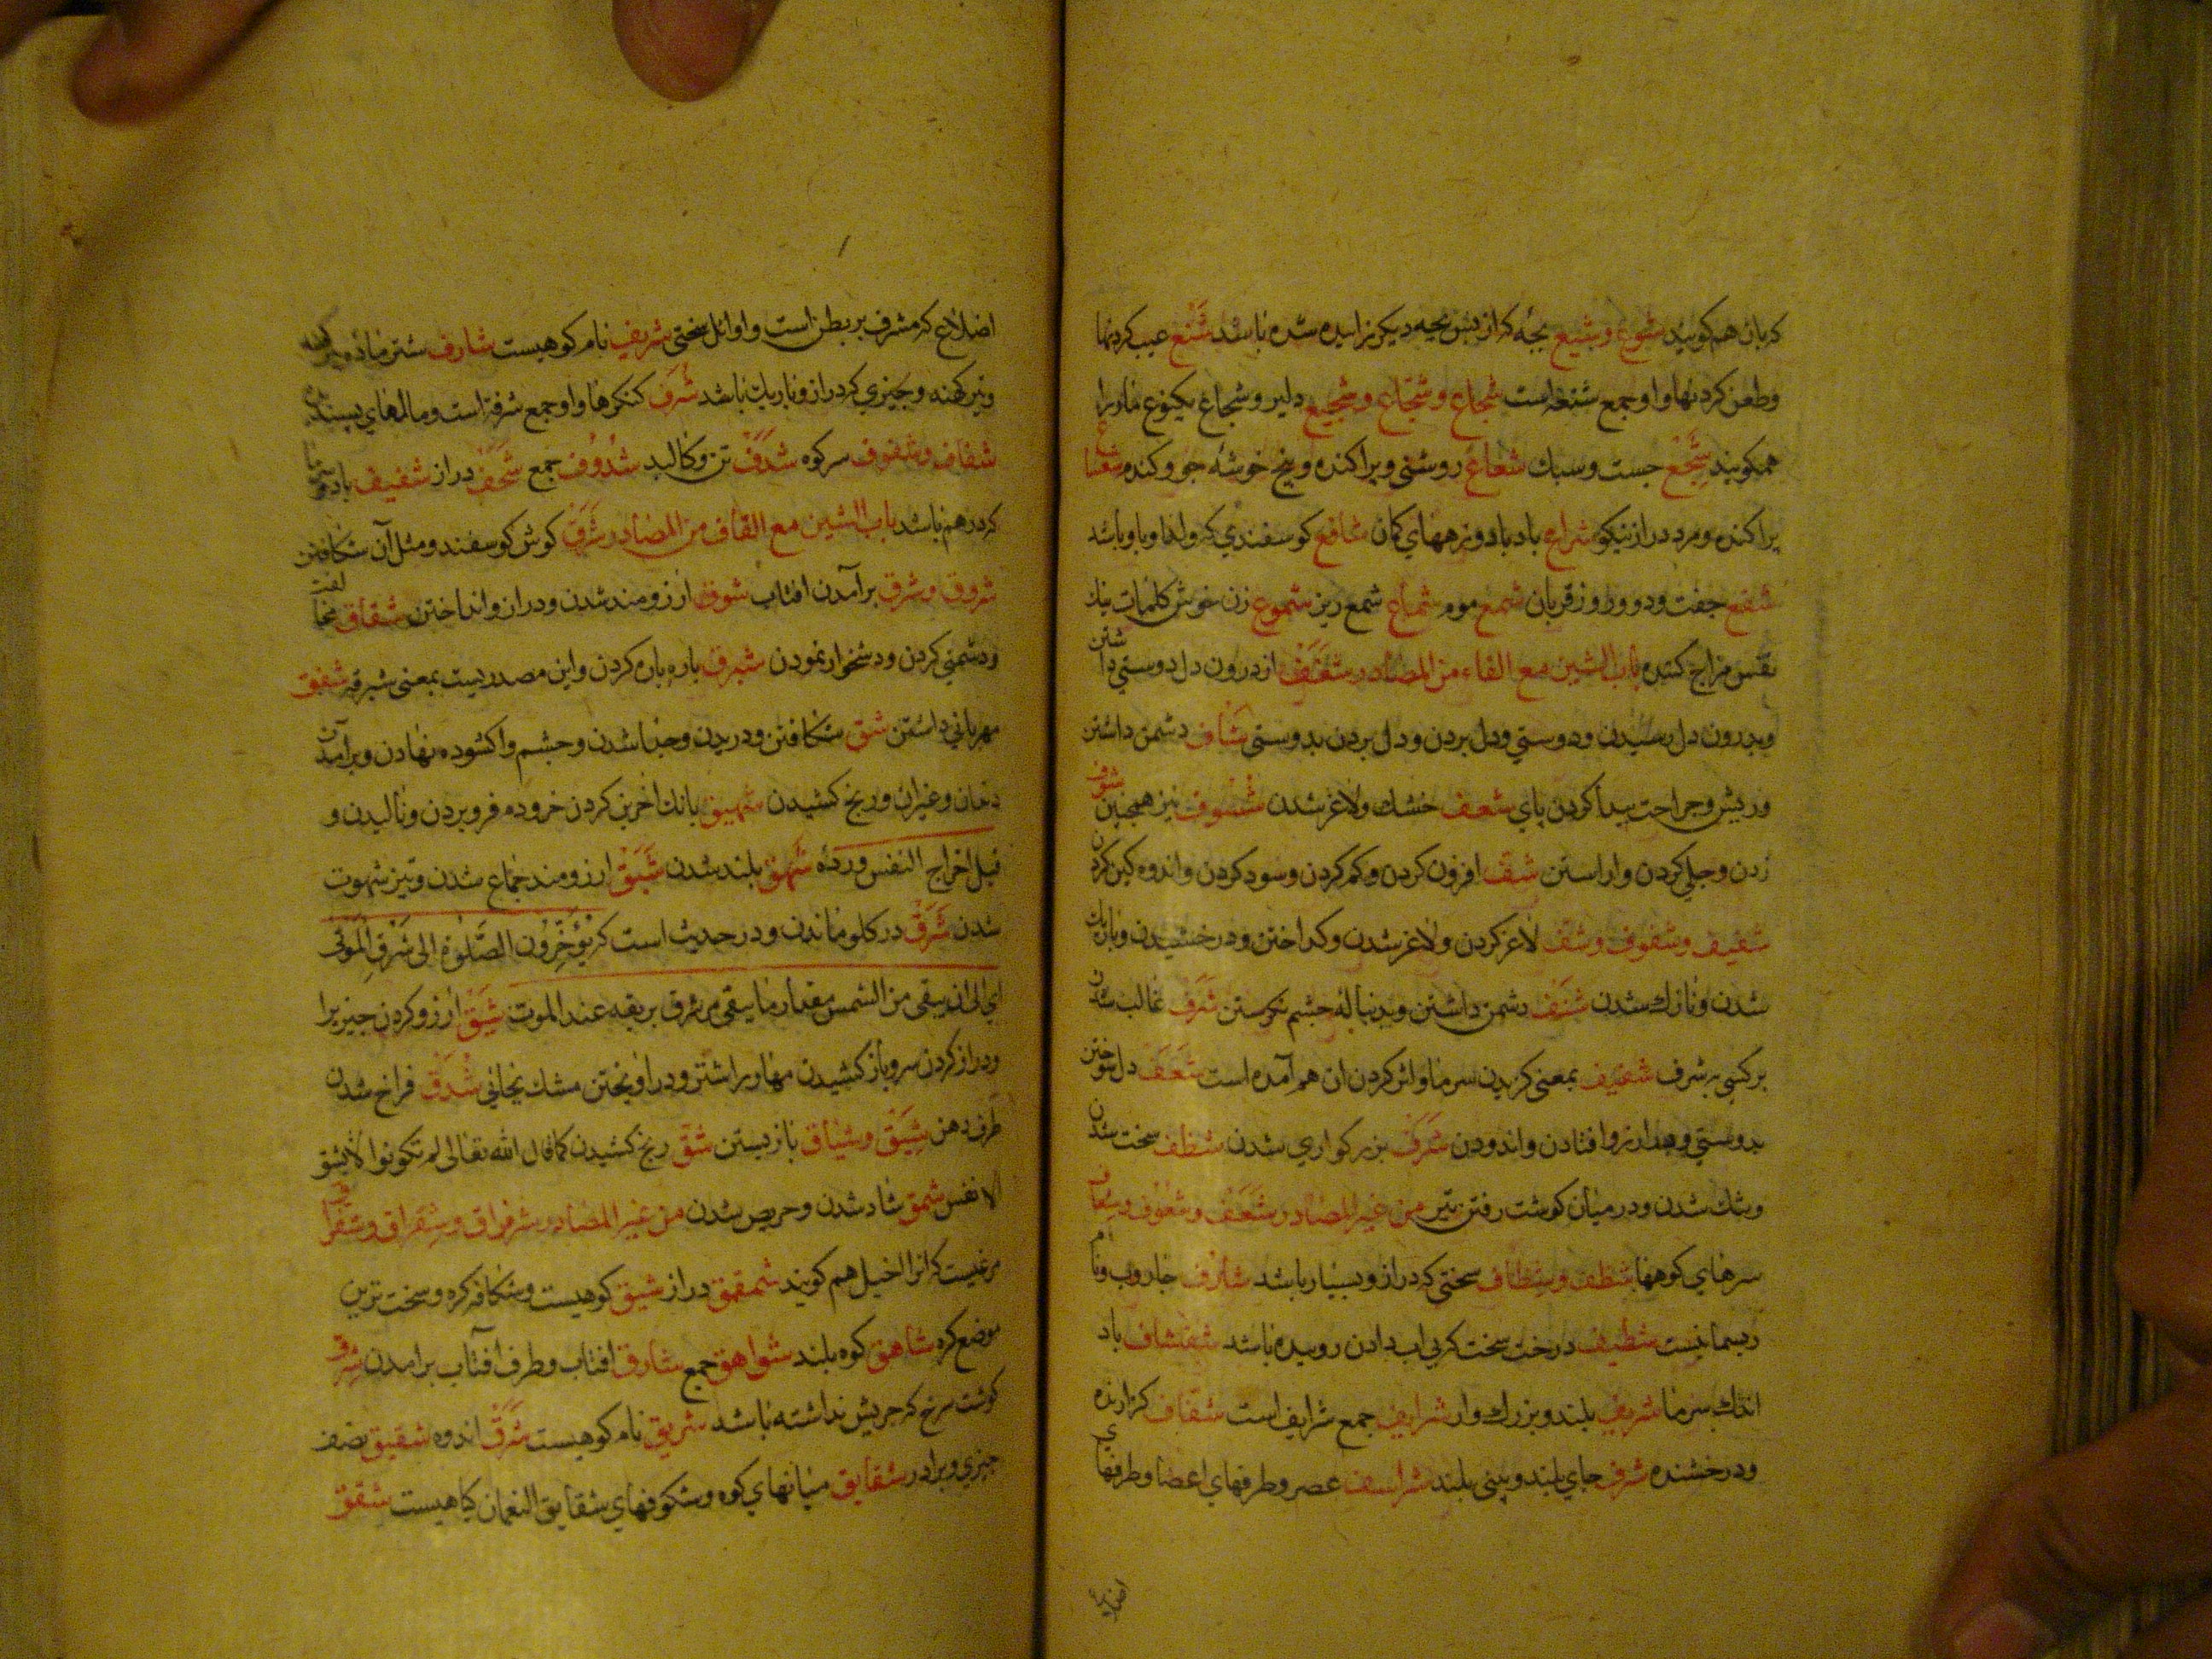 که بان هم کویند شوع وشیع بچهٔ که از پس بچه دیکر زاییده شده باشد شنع عیب کردنها
وطعن کردنها واو جمع شنعه است شجاع وشجاع وشجیع دلیر وشجاع یکنوع مار را
همکویند شجع جست وسبک شعاع روشنی وپراکنده وبیخ خوشه جو وکنده شعا
پراکنده ومرد دراز نیکو شراع بادباد وزههای کمان شافع کوسفندی که ولد او با او باشد
شفع جفت ودو وروز قربان شمع موم شماع شمع ریز شموع زن خوش کلمات نیک
نفس مزاح کننده باب الشین مع الفاء من المصادر شغف از درون دل دوستی داشتن
وبدرون دل رسیدن ودوستی ودل بردن ودل بردن بدوستی شاف دشمن داشتن
وریش وجراحت پیدا کردن پای شعف خشک ولاغر شدن شسوف نیز همچنین شوف
زدن وجلی کردن واراستن شف افزون کردن وکم کردن وسود کردن واندوه کین کردن
شفیف وشفوف وشف لاغر کردن ولاغر شدن وکداختن ودرخشیدن وباریک
شدن ونازک شدن شنف دشمن داشتن وبدنبالهٔ چشم نکرستن شرف غالب شدن
بر کسی به شرف شفیف بمعنی کزیدن سرما واثر کردن ان هم آمده است شعف دل سوختن
بدوستی وبیدار زوافتادن واندودن شرف بزرکواری شدن شظف سخت شدن
وتنک شدن ودر میان کوشت رفتن تیر من غیر المصادر شعف وشعوف وشعاف
سرهای کوهها شظف وشظاف سختی که دراز وبسیار باشد شارف جاروب ونام
ریسمانیست شظیف درخت سخت کز بی اب دادن روییده باشد شفشاف باد
اندک سرما شریف بلند وبزرک وار شرایف جمع شرایف است شفاف کزارنده
ودرخشنده شرف جای بلند وبینی بلند شراسف عصر وطرفهای اعضا وطرفهای
اضلاع
اضلاع که مشرف بر بطن است واوائل سختی شریف نام کوهیست شارف شتر ماده پیر کهنه
وتیر کهنه وچیزی که دراز وباریک باشد شرف کنکرها واو جمع شرفة است ومالهای پسندیده
شفاف وشفوف سر کوه شدف تن وکالبد شدوف جمع شحف دراز شفیف باد سرما
که در هم باشد باب الشین مع القاف من المصادر شرق کوش کوسفند ومثل آن شکافتن
شروق وشرق برآمدن افتاب شوق ارزومند شدن ودراز وانداختن شقاق مخالفت
ودشمنی کردن ودشخوار نمودن شبرق پاره پاره کردن واین مصدریست بمعنی شبرقه شفق
مهربانی داشتن شق شکافتن ودریدن وجدا شدن وچشم واکشوده نهادن وبرآمدن
دندان وغیران ورنج کشیدن شهیق بانک اخرین کردن خر ودم فرو بردن ونالیدن و
قیل اخراج النفس ورده شهق بلند شدن شبق ارزومند جماع شدن وتیز شهوت
شدن شرق در کلو ماندن ودر حدیث است که یؤخرون الصلوة الی شرق الموتی
ای الی ان یبقی من الشمس مقدار ما یبقی من شرق بریقه عند الموت شیق ارزو کردن چیز را
ودراز کردن سر وباز کشیدن مهار بر اشتر ودر اویختن مشک بجائی شدق فراخ شدن
طرف دهن شیق وشیاق باز بستن شق رنج کشیدن کما قال الله تعالی لم تکونوا الا بشق
الانفس شمق شاد شدن وحریص شدن من غیر المصادر شرقراق وشقراق وشقراق
مرغیست که انرا اخیل هم کویند شمقمق دراز شیق کوهیست وشکاف کره وسخت ترین
موضع کره شاهق کوه بلند شواهق جمع شارق افتاب وطرف افتاب برامدن شرق
کوشت سرخ که چربش نداشته باشد شریق نام کوهیست شرق اندوه شقیق نصف
چیزی وبرادر شقایق میانهای کوه وشکوفهای شقایق النعمان کیاهیست شقق